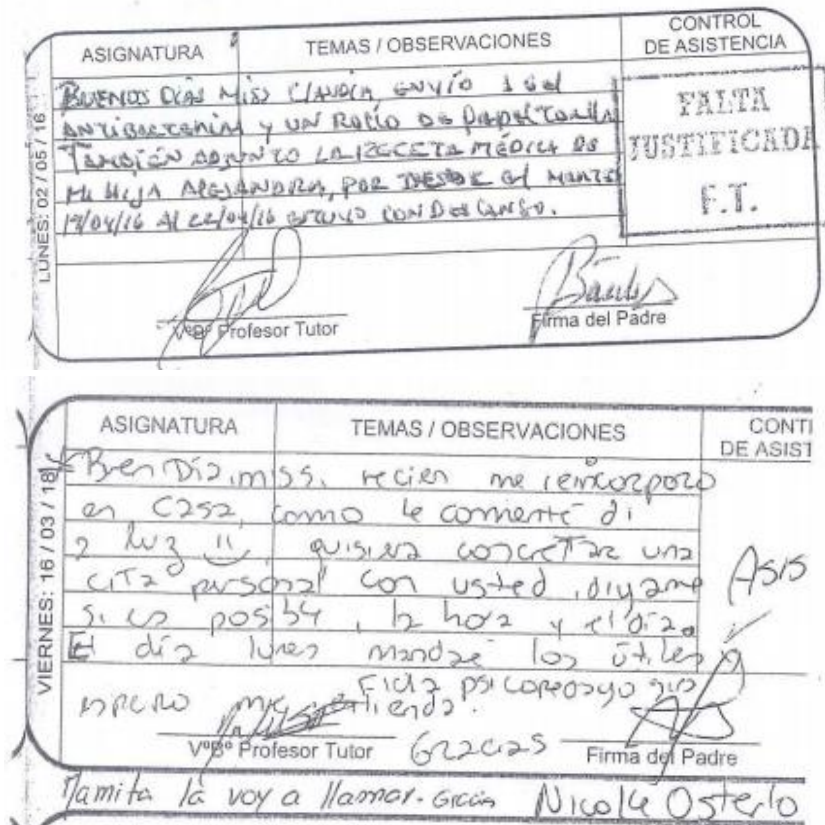 ASIGNATURA TEMAS / OBSERVACIONES CONTROL DE ASISTENCIA
LUNES: 02 / 05 / 16
BUENOS DÍAS MISS CLAUDIA, ENVÍO 1 Gel
ANTIBACTERIAL y UN ROLLO DE PAPEL TOALLA
TAMBIÉN ADJUNTO LA RECETA MÉDICA DE
MI HIJA ALEJANDRA, POR DESDE el MARTES
19/04/16 Al 22/04/16 ESTUVO CON DESCANSO.
FALTA
JUSTIFICADA
F.T.
VºBº Profesor Tutor Firma del Padre
ASIGNATURA TEMAS / OBSERVACIONES CONT
DE ASIST
VIERNES: 16 / 03 / 18
Buen Día, miss, recien me reincorporo
en casa, como le comenté di
a luz !!, quisiera concretar una
cita personal con usted, digame
si es posble, la hora y el día.
El día lunes mandaré los útiles
Asis
espero me entienda.
Gracias
VºBº Profesor Tutor Firma del Padre
Mamita la voy a llamar. Gracias Nicole